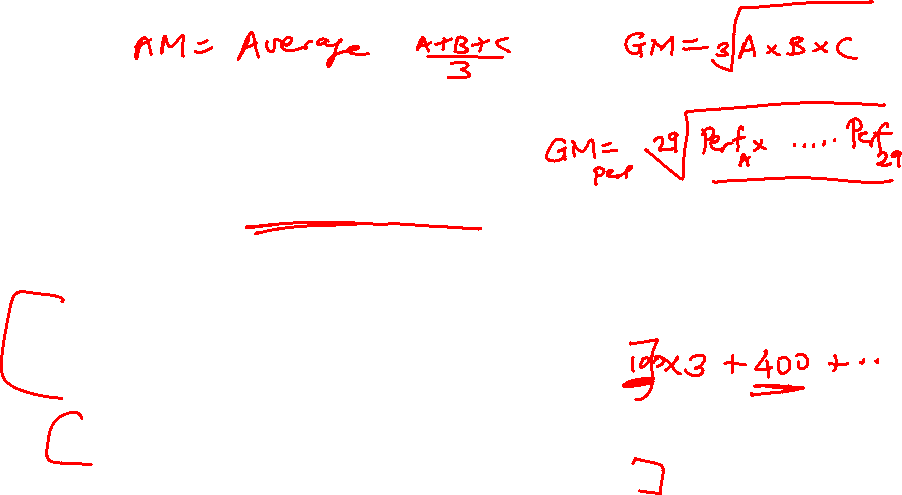 AM = Average A+B+C/3 GM = 3√A × B × C
GM perf = 29√Perf A × ..... Perf 29
100×3 + 400 + ..